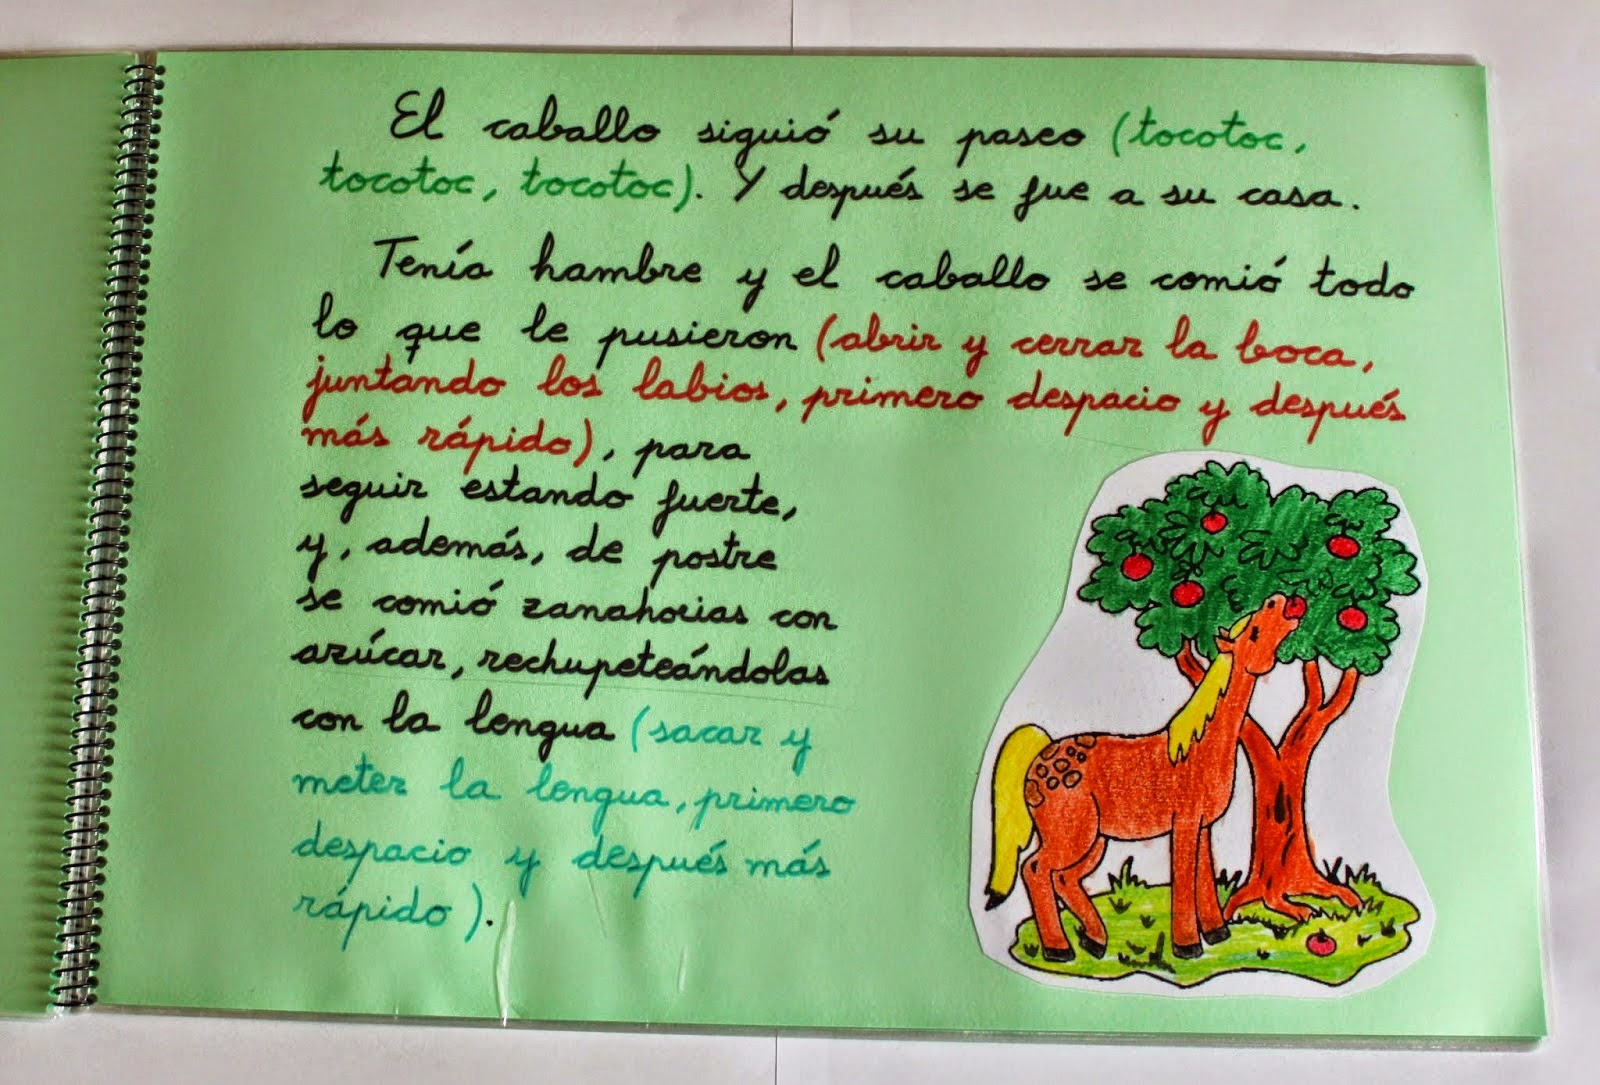 El caballo siguió su paseo (tocotoc,
tocotoc, tocotoc). Y después se fue a su casa.
Tenía hambre y el caballo se comió todo
lo que le pusieron (abrir y cerrar la boca,
juntando los labios, primero despacio y después
más rápido), para
seguir estando fuerte,
y, además, de postre
se comió zanahorias con
azúcar, rechupeteándolas
con la lengua (sacar y
meter la lengua, primero
despacio y después más
rápido).